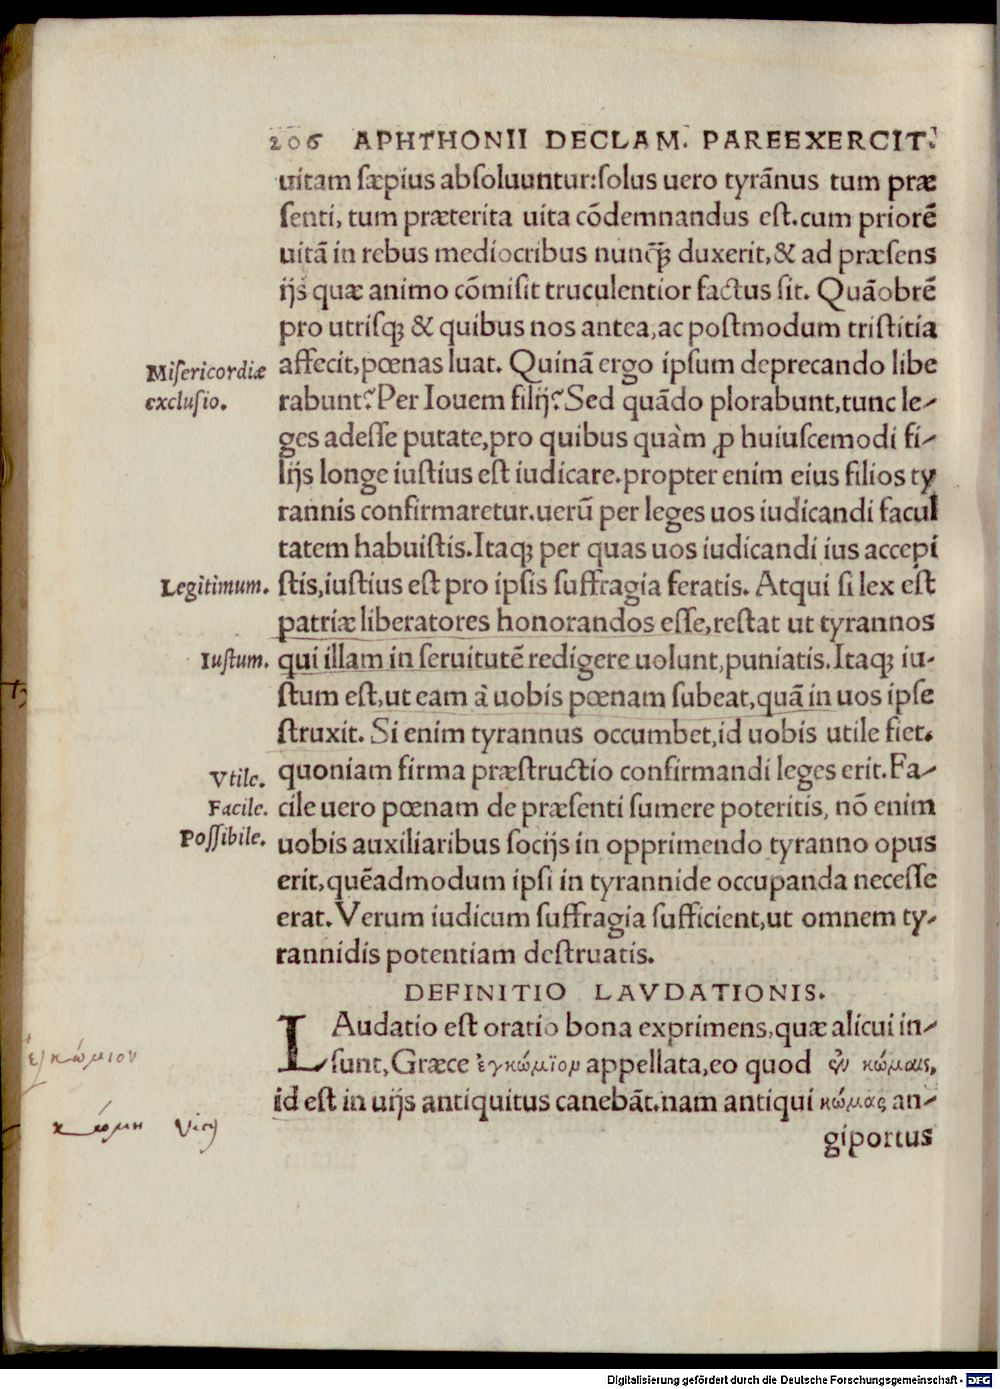 206 APHTHONII DECLAM. PRAEEXERCIT.
uitam sæpius absoluuntur:solus uero tyrãnus tum præ
senti, tum præterita uita cõdemnandus est.cum priorẽ
uitã in rebus mediocribus nunꝗ̃ duxerit,& ad præsens
ijs quæ animo cõmisit truculentior factus sit. Quãobrẽ
pro utrisqꝫ & quibus nos antea,ac postmodum tristitia
Misericordiæ affecit,pœnas luat. Quinã ergo ipsum deprecando libe
exclusio. rabunt? Per Iouem filij? Sed quãdo plorabunt,tunc le-
ges adesse putate,pro quibus quàm ꝓ huiuscemodi fi-
lijs longe iustius est iudicare.propter enim eius filios ty
rannis confirmaretur.uerũ per leges uos iudicandi facul
tatem habuistis.Itaqꝫ per quas uos iudicandi ius accepi
Legitimum. stis,iustius est pro ipsis suffragia feratis. Atqui si lex est
patriæ liberatores honorandos esse,restat ut tyrannos
Iustum. qui illam in seruitutẽ redigere uolunt,puniatis.Itaqꝫ iu-
stum est,ut eam à uobis pœnam subeat,quã in uos ipse
struxit. Si enim tyrannus occumbet,id uobis utile fiet.
Vtile. quoniam firma præstructio confirmandi leges erit.Fa-
Facile. cile uero pœnam de præsenti sumere poteritis, nõ enim
Possibile. uobis auxiliaribus socijs in opprimendo tyranno opus
erit,quẽadmodum ipsi in tyrannide occupanda necesse
erat. Verum iudicum suffragia sufficient,ut omnem ty-
rannidis potentiam destruatis.
DEFINITIO LAVDATIONIS.
LAudatio est oratio bona exprimens,quæ alicui in-
ἐγκώμιον sunt,Græce ἐγκώμϊον appellata,eo quod ἐν κώμαις,
id est in uijs antiquitus canebãt.nam antiqui κώμας an-
κώμη Vicus
giportus
Digitalisierung gefördert durch die Deutsche Forschungsgemeinschaft - DFG